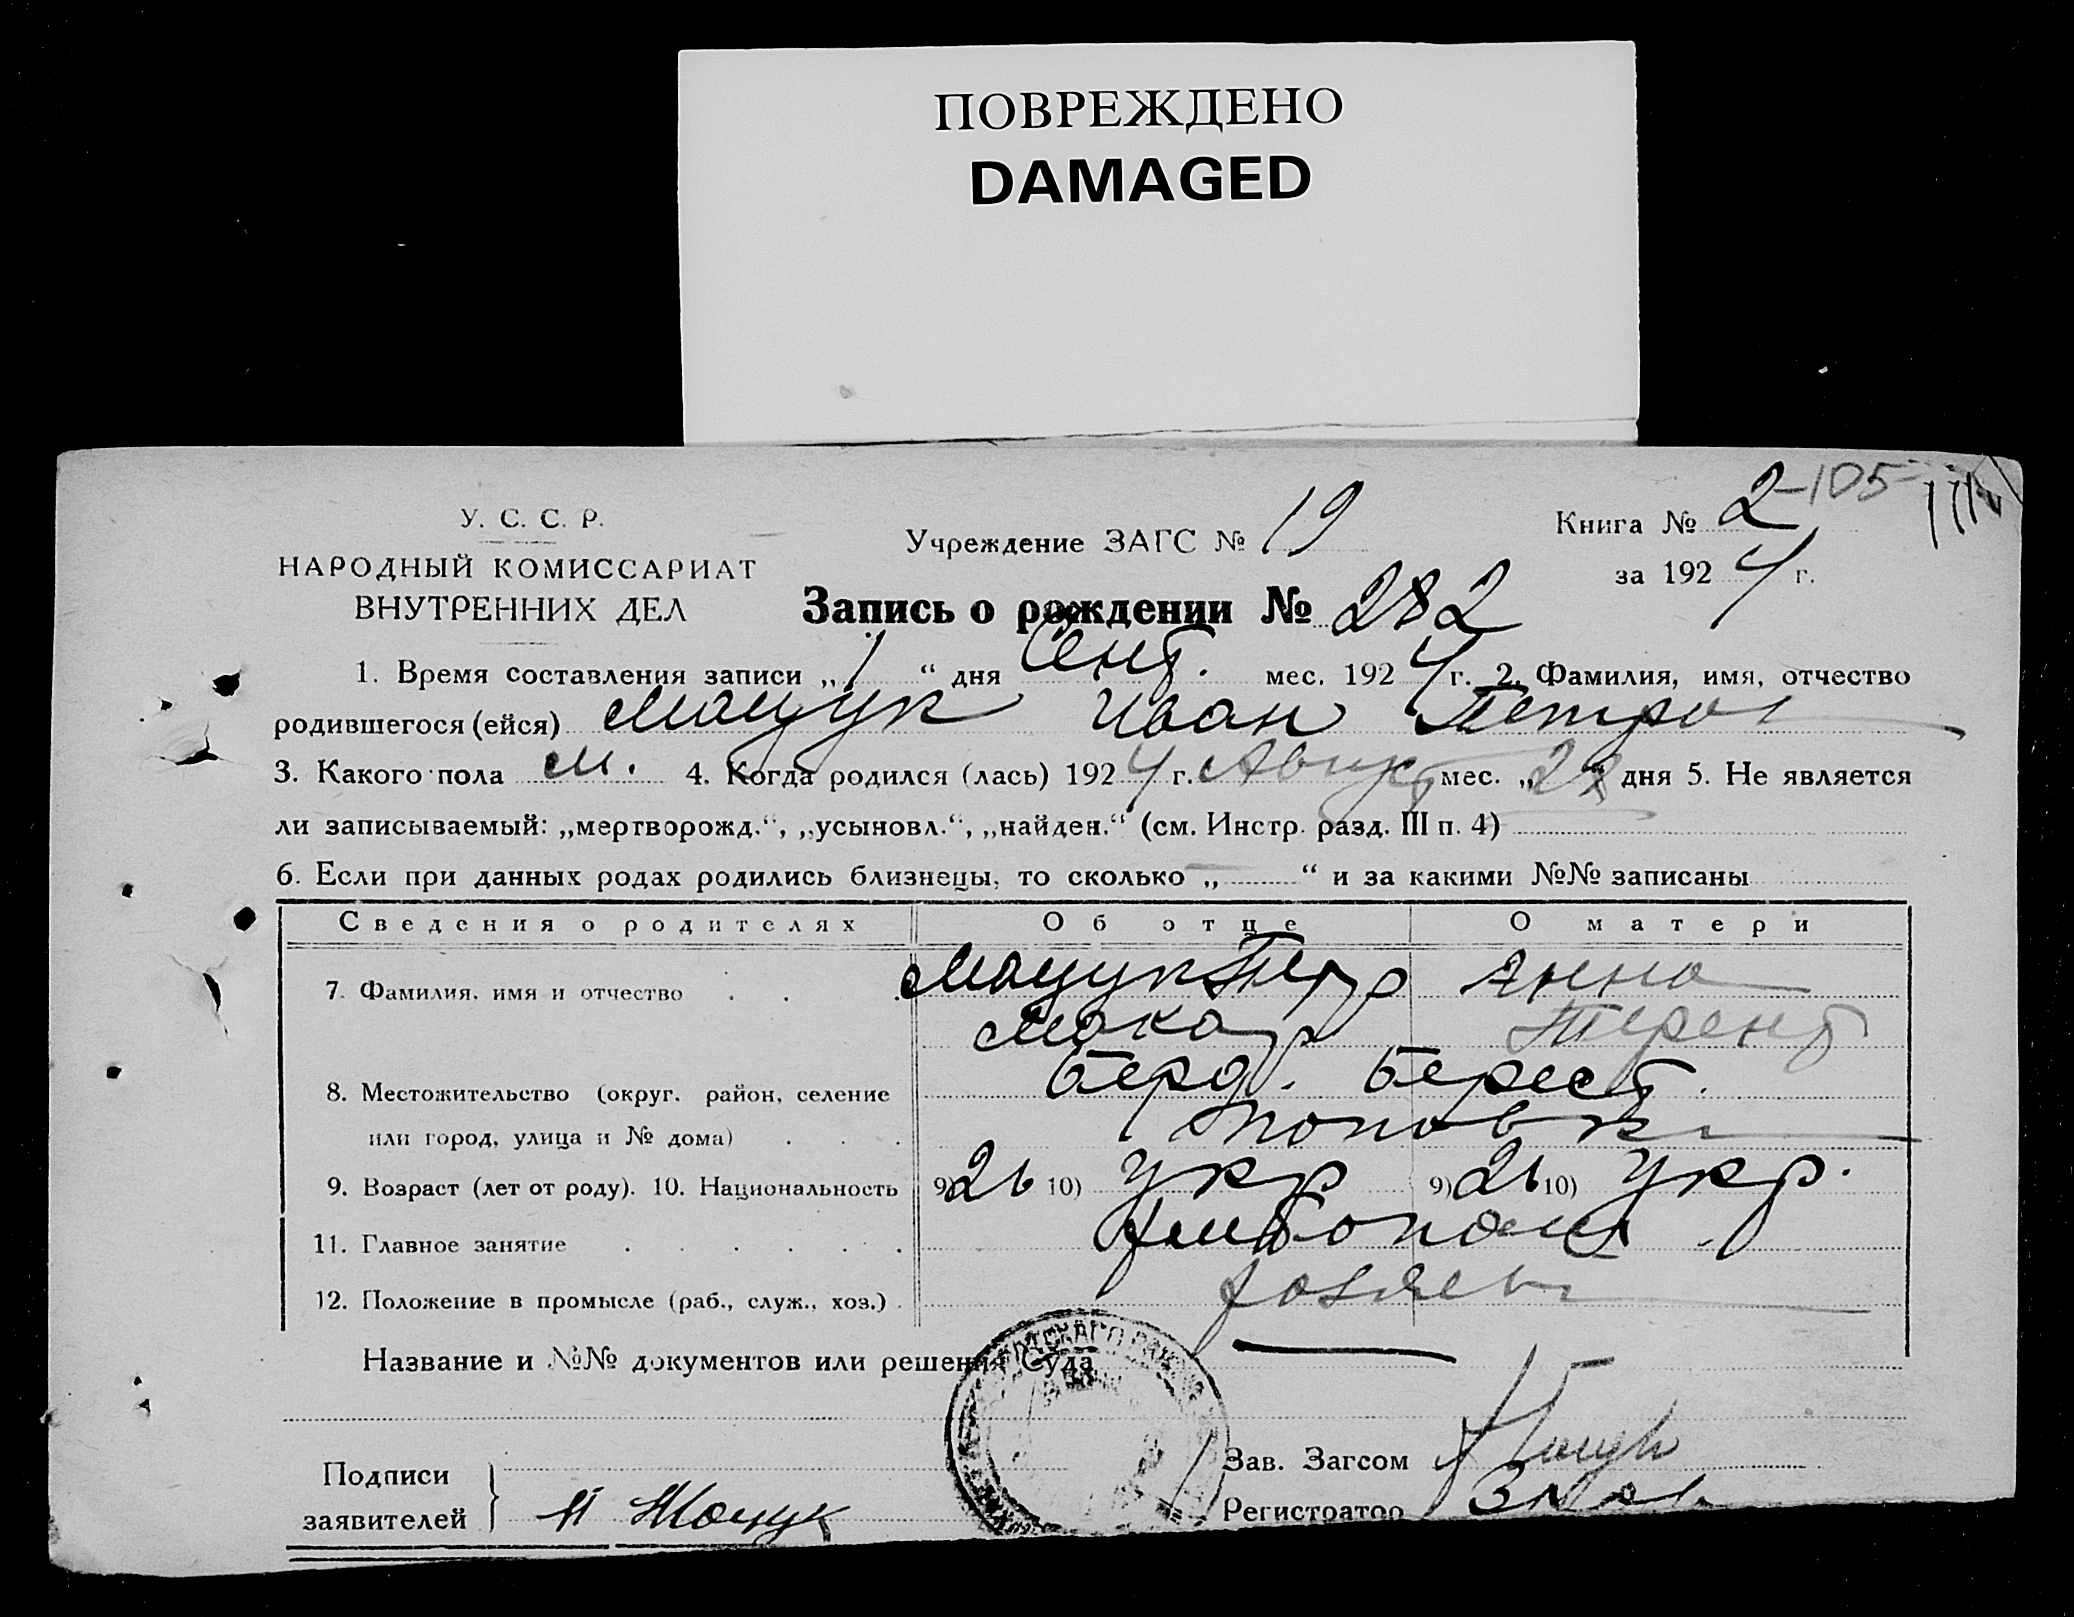 ПОВРЕЖДЕНО
DAMAGED
2-105
У. С. С. Р.
НАРОДНЫЙ КОМИССАРИАТ
ВНУТРЕННИХ ДЕЛ
Учреждение ЗАГС № 19
Книга № 2
за 1924 г.
Запись о рождении № 282
1. Время составления записи „1“ дня Сент. мес. 1924 г. 2. Фамилия, имя, отчество
родившегося (ейся) Мацук Иван Петро
3. Какого пола м. 4. Когда родился (лась) 1924 г. Август мес. „28“ дня 5. Не является
ли записываемый: „мертворожд.“, „усыновл.“, „найден.“ (см. Инстр. разд. III п. 4)
6. Если при данных родах родились близнецы, то сколько „ “ и за какими №№ записаны
Сведения о родителях Об отце О матери
7. Фамилия, имя и отчество Мацук Петро Анна
Макар Терент
8. Местожительство (округ, район, селение Берд. Берест.
или город, улица и № дома) Поповка
9. Возраст (лет от роду). 10. Национальность 9) 26 10) укр 9) 26 10) укр.
11. Главное занятие хлебопаш.
12. Положение в промысле (раб., служ., хоз.) хозяева
Название и №№ документов или решения Суда
Подписи
заявителей П Мацук
Зав. Загсом
Регистратор